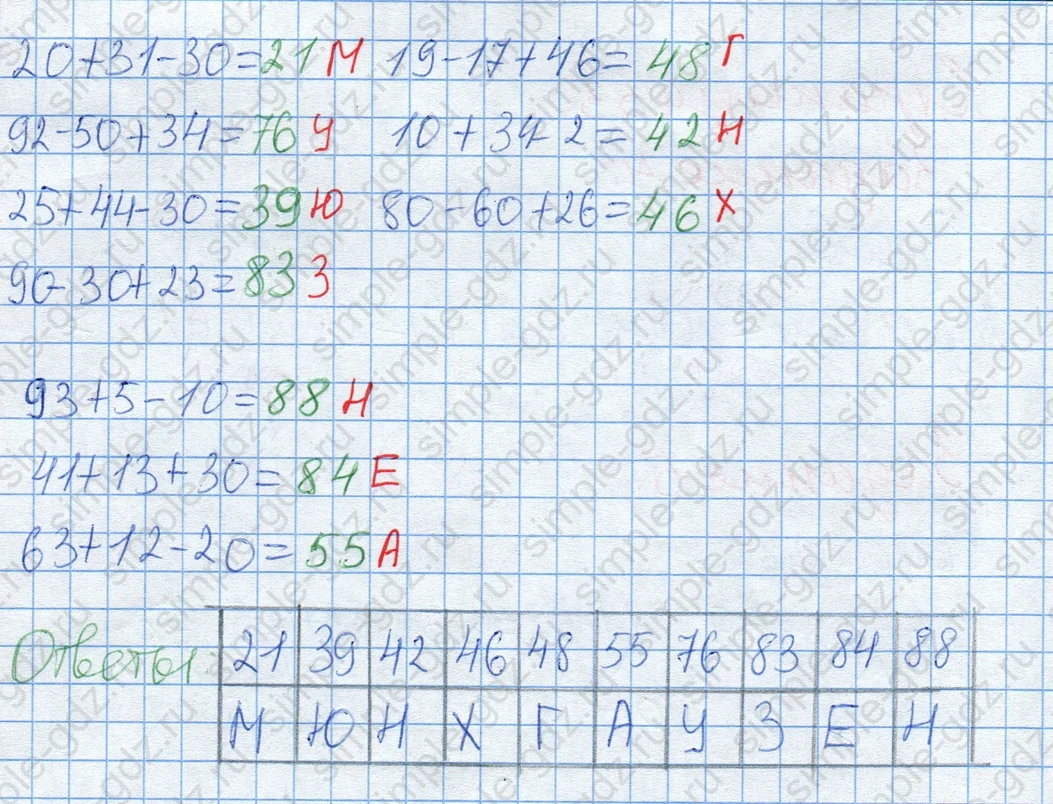 20+31-30=21 М 19-17+46=48 Г
92-50+34=76 У 10+34-2=42 Н
25+44-30=39 Ю 80-60+26=46 Х
90-30+23=83 З
93+5-10=88 Н
41+13+30=84 Е
63+12-20=55 А
Ответы: 21 39 42 46 48 55 76 83 84 88
М Ю Н Х Г А У З Е Н
simple-gdz.ru